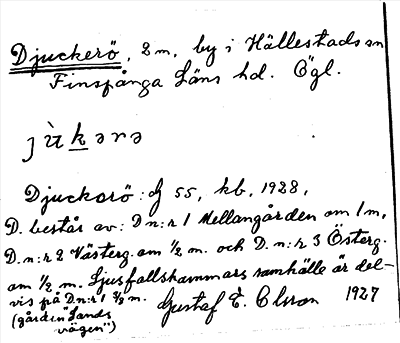 Djuckerö, 2 m, by i Hällestads sn
Finspånga Läns hd. Ögl.
jù̀kərə
Djuckarö: J 55, kb, 1928,
D. består av: D n:r 1 Mellangården om 1 m,
D. n:r 2 Västerg. om 1/2 m. och D. n:r 3 Österg.
om 1/2 m. Ljusfallshammars samhälle är del-
vis på D n:r 1 3/2 m. Gustaf E. Olsson 1927
(gården "Lands
vägen")